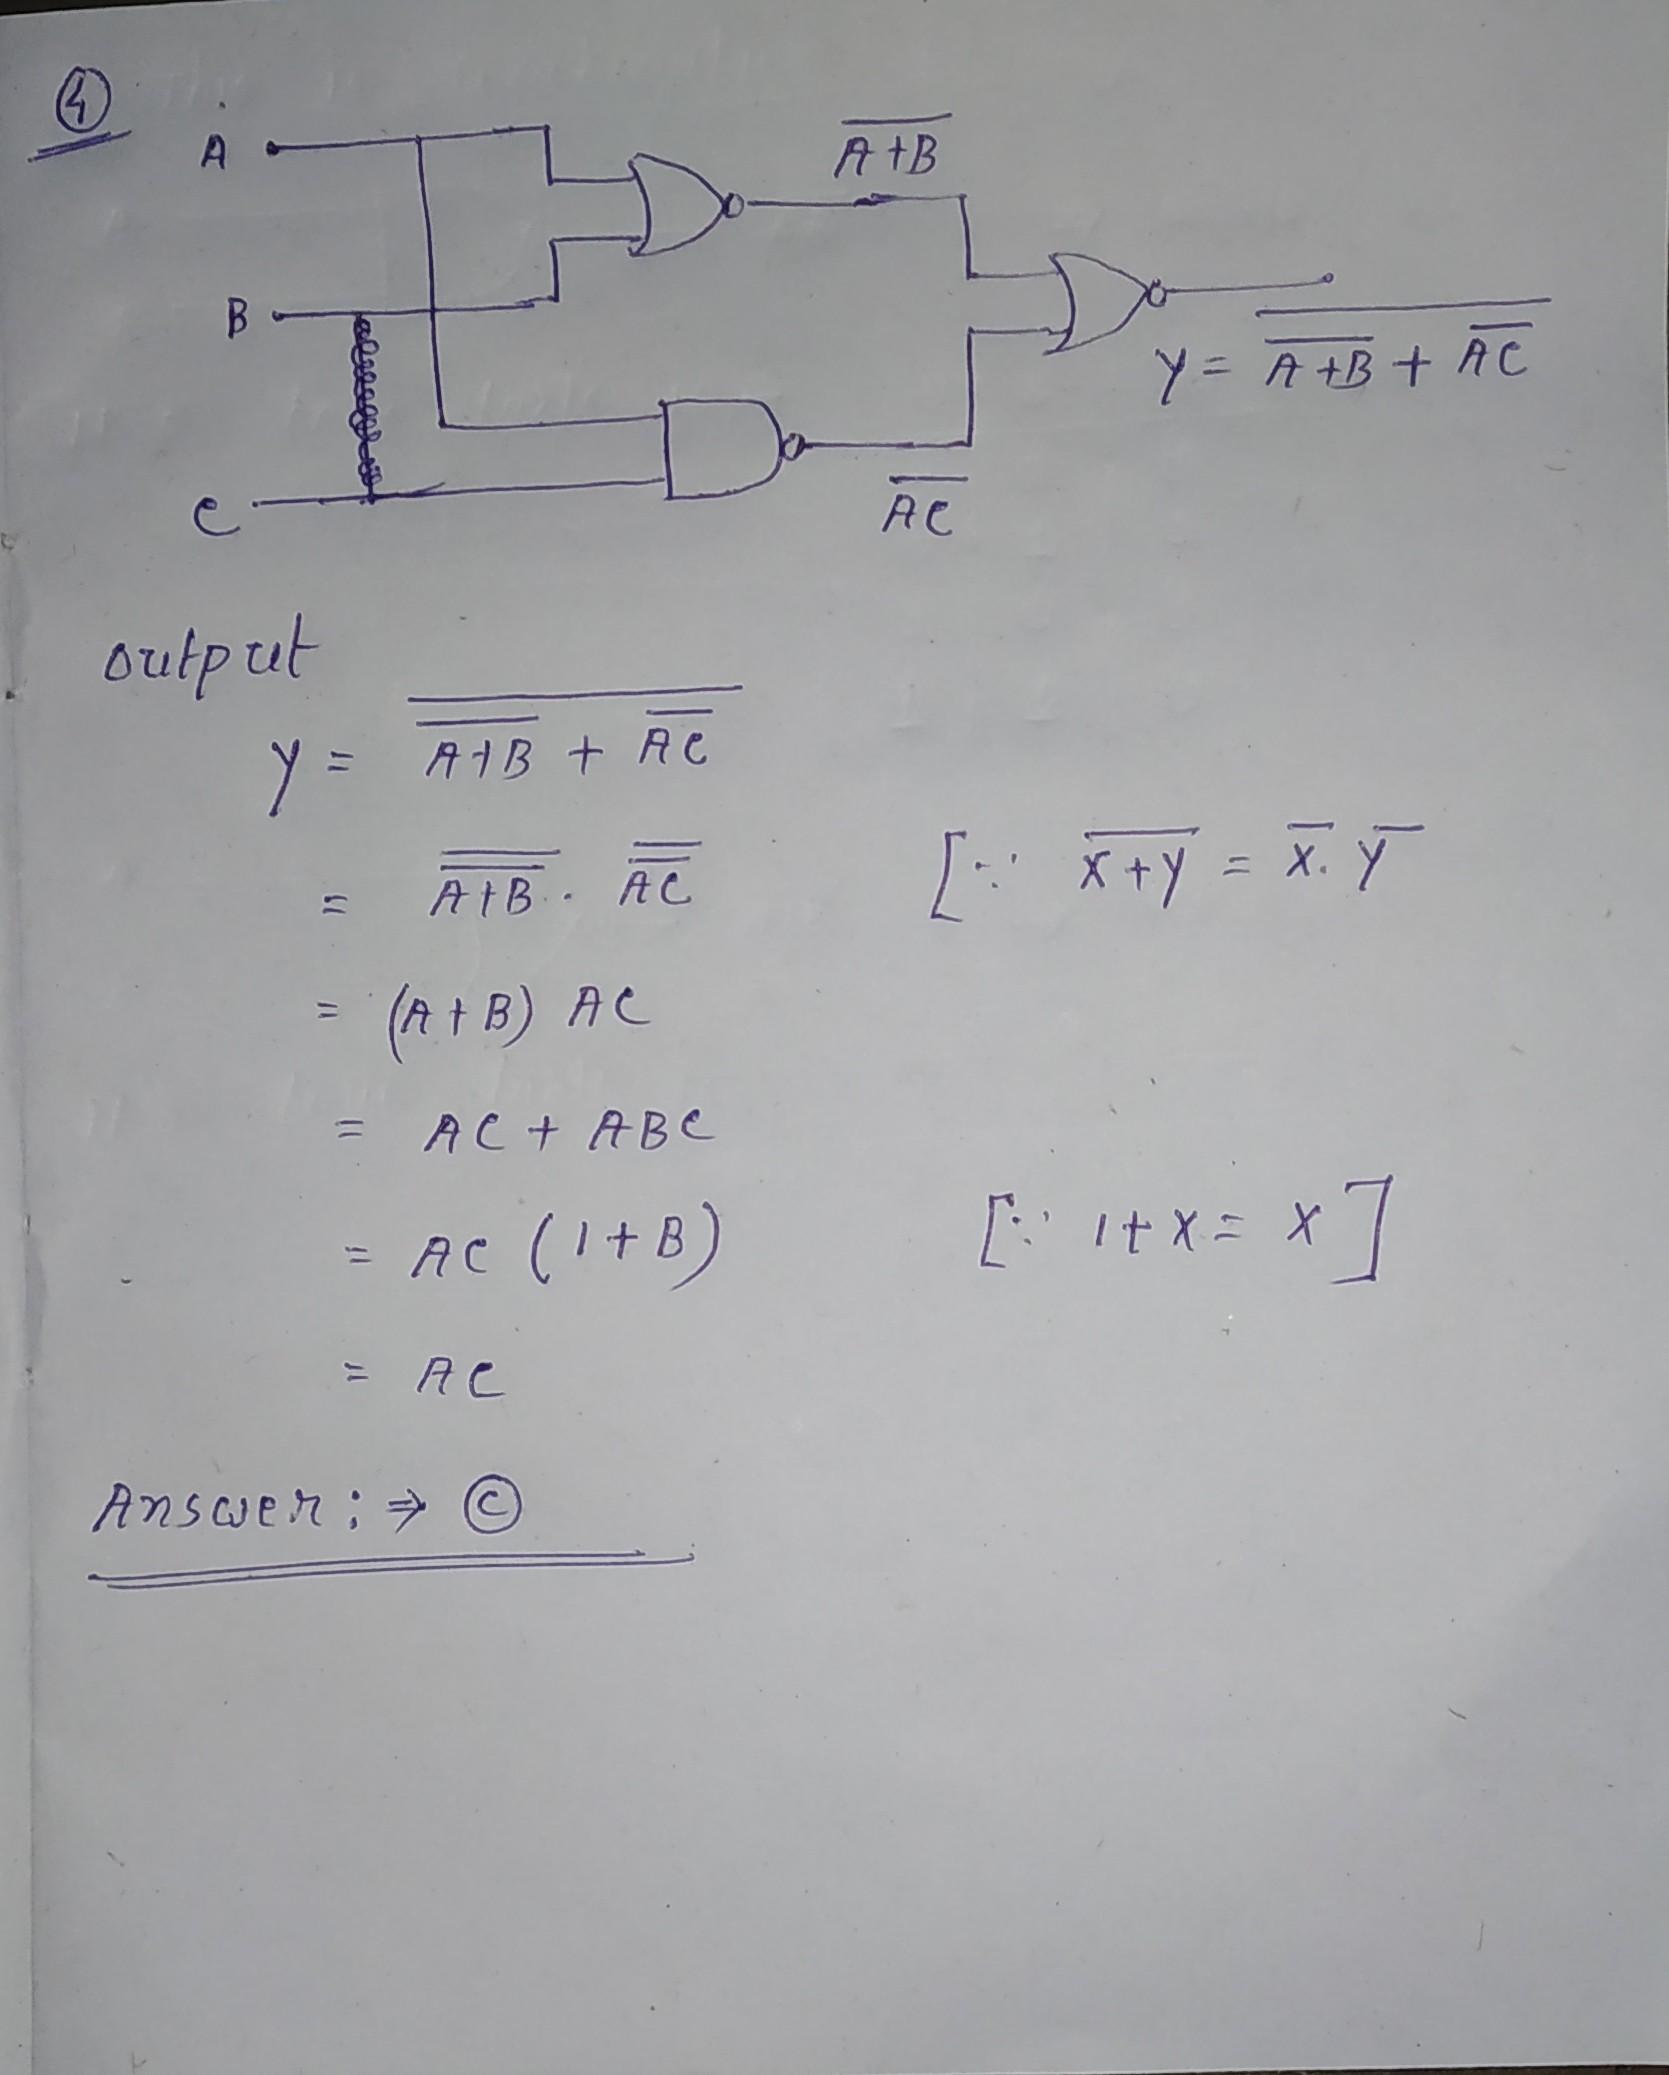 ④
A
A̅+̅B̅
B
Y = \overline{\overline{A+B} + \overline{AC}}
C
\overline{AC}
output
Y = \overline{\overline{A+B} + \overline{AC}}
= \overline{\overline{A+B}} . \overline{\overline{AC}} [∵ \overline{X+Y} = \overline{X}.\overline{Y}
= (A+B) AC
= AC + ABC
= AC (1+B) [∵ 1+X = X]
= AC
Answer : ⇒ ©